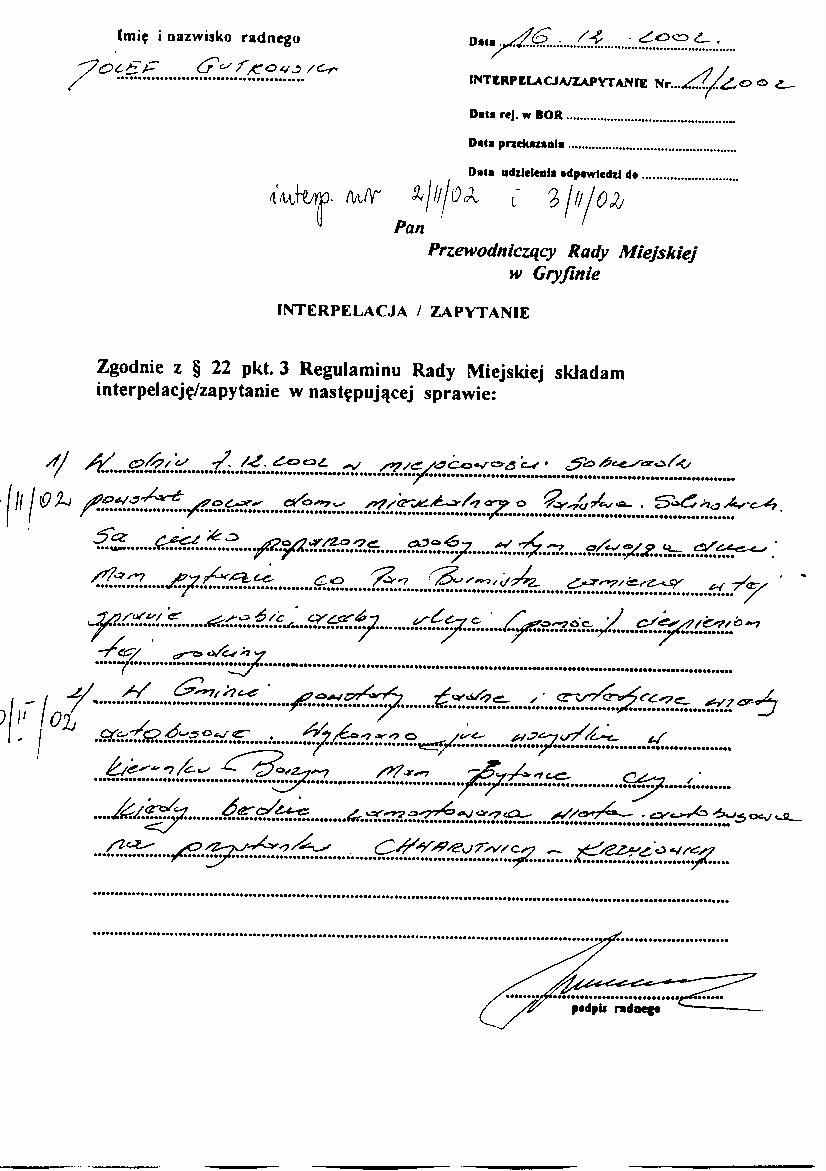 Imię i nazwisko radnego
JÓZEF GUTKOWSKI
Data 16.12.2002.
INTERPELACJA/ZAPYTANIE Nr 1/2002
Data rej. w BOR
Data przekazania
Data udzielenia odpowiedzi do
interp. nr 2/II/02 i 3/II/02
Pan
Przewodniczący Rady Miejskiej
w Gryfinie
INTERPELACJA / ZAPYTANIE
Zgodnie z § 22 pkt. 3 Regulaminu Rady Miejskiej składam
interpelację/zapytanie w następującej sprawie:
1) W dniu 7.12.2002 w miejscowości Sobieradz
/II/02 powstał pożar domu mieszkalnego Państwa
Są ciężko poparzone osoby w tym dwoje dzieci.
Mam pytanie co Pan Burmistrz zamierza w tej
sprawie zrobić, ażeby ulżyć (pomóc) cierpieniom
tej rodziny
2) W Gminie powstały ładne i estetyczne wiaty
/II/02 autobusowe. Wykonano już wszystkie w
kierunku - Bań. Mam pytanie czy i
kiedy będzie zamontowana wiata autobusowa
na przystanku CHWARSTNICA - KRZYŻÓWKA
podpis radnego